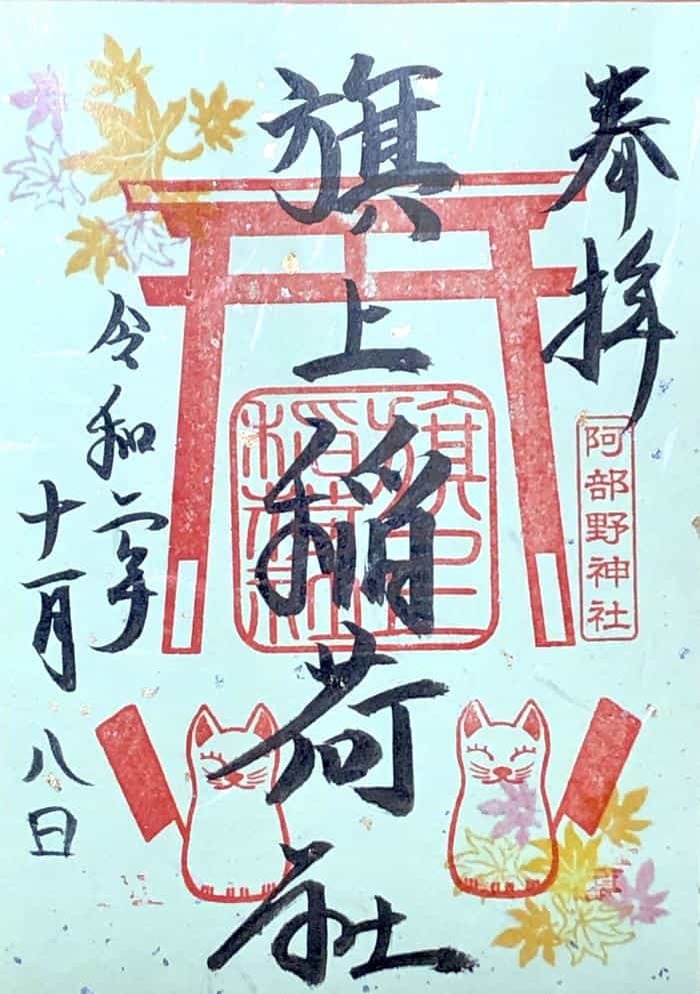 奉拝
阿部野神社
旗上稲荷社
旗上
稲荷社
令和二年
十一月八日